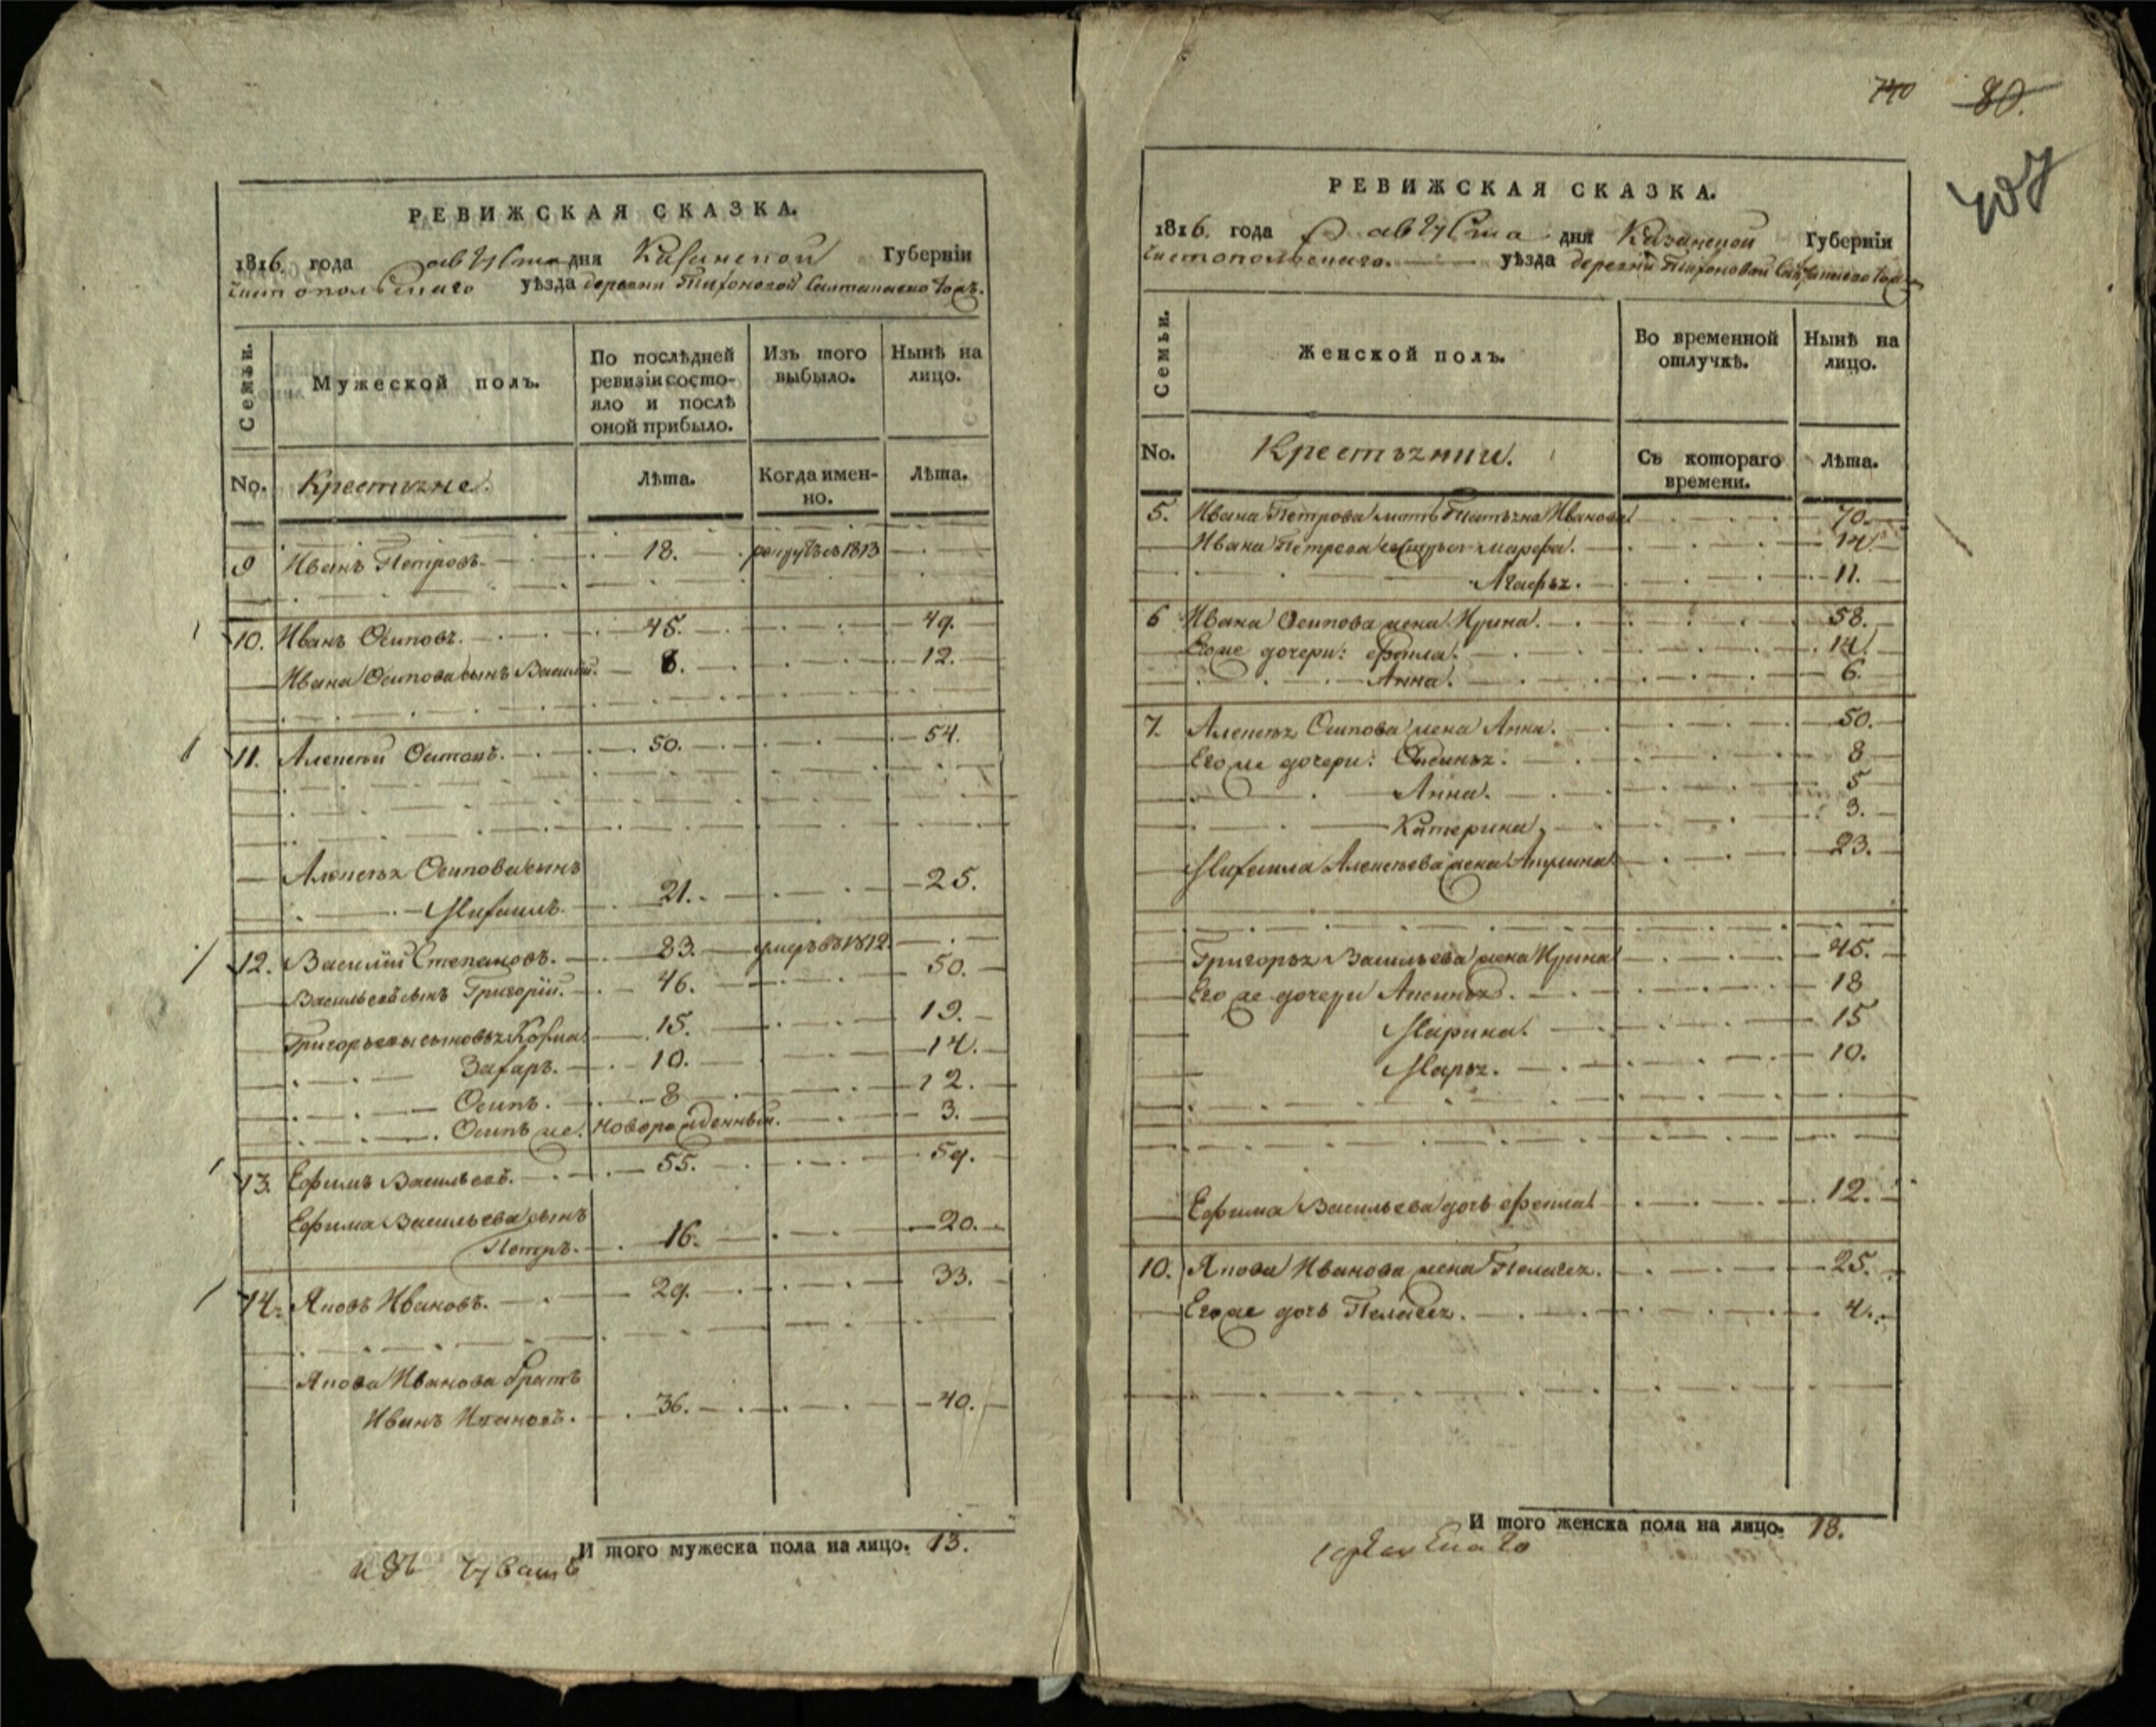 РЕВИЖСКАЯ СКАЗКА.
1816. года августа дня Казанской Губерніи
Чистопольскаго уѣзда деревни Тихоновой
Семьи.
Мужеской полъ.
По послѣдней ревизіи состояло и послѣ оной прибыло.
Изъ того выбыло.
Нынѣ на лицо.
No. Крестьяне. Лѣта. Когда именно. Лѣта.
9 Иванъ Петровъ. 18. рекрутъ въ 1813
10. Иванъ Осиповъ. 45. 49.
Ивана Осипова сынъ Василій. 8. 12.
11. Алексѣй Осиповъ. 50. 54.
Алексѣя Осипова сынъ
Михаилъ. 21. 25.
12. Василій Степановъ. 83. умеръ въ 1812.
Васильевъ сынъ Григорій. 46. 50.
Григорьевы сыновья Козма. 15. 19.
Захаръ. 10. 14.
Осипъ. 8 12.
Осипъ же. новорожденный. 3.
13. Ефимъ Васильевъ. 55. 59.
Ефима Васильева сынъ
Петръ. 16. 20.
14. Яковъ Ивановъ. 29. 33.
Якова Иванова братъ
Иванъ Ивановъ. 36. 40.
И того мужеска пола на лицо. 13.
изъ Чувашъ
740 80.
407
РЕВИЖСКАЯ СКАЗКА.
1816. года августа дня Казанской Губерніи
Чистопольскаго. уѣзда деревни Тихоновой
Семьи.
Женской полъ.
Во временной отлучкѣ.
Нынѣ на лицо.
No. Крестьянки. Съ котораго времени. Лѣта.
5. Ивана Петрова мать Татьяна Иванова 70.
Ивана Петрова сестры Марфа. 14
Агафья. 11.
6 Ивана Осипова жена Ирина. 58.
Его же дочери: Фекла. 14.
Анна. 6.
7. Алексѣя Осипова жена Анна. 50.
Его же дочери: 8
Анна. 5
Катерина, 3.
Михаила Алексѣева жена Акулина 23.
Григорья Васильева жена Ирина 45.
Его же дочери Аксинья. 18
Марина. 15
Марья. 10.
Ефима Васильева дочь Фекла 12.
10. Якова Иванова жена Пелагея. 25.
Его же дочь Пелагея. 4.
И того женска пола на лицо. 18.